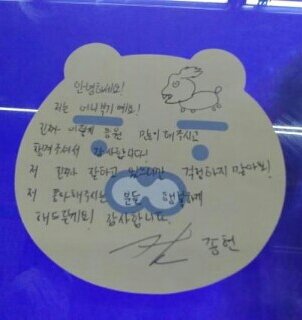 안녕하세요!
저는                예요!
진짜 이렇게 응원 많이 해주시고
         주셔서 감사합니다!
저 진짜 잘하고 있으니깐 걱정하지 말아요!
저 좋아해주시는 분들 행복하게
해드릴게요! 감사합니다.
종현